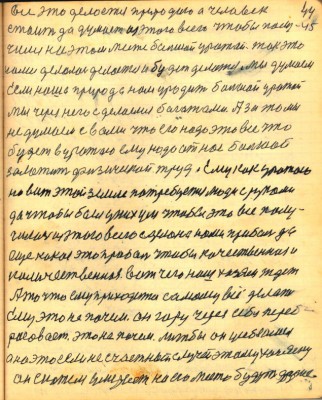 все это делается природою а человек 44
стоит да думает из этого всего чтобы полу- 45
чился на этом месте большой урожай. так это
нами делалось делается и будет делаться, мы думаем
если наша природа нам уродит большой урожай
мы через него сделаемся богатыми. А за то мы
не думаем с вами что его надо это все это
будет в урожаю ему надо отное большой
заплатит физический труд. Ему как урожаю
на вит этой земле потребуется люди с руками
да чтобы был у них ум чтобы это все полу-
чилось из этого всего сделано нами прибыль да
еще какая это прибыль чтобы качественная и
количественная. вот чего наш хозяин ждет
А то что ему приходится самому всё делать
ему это не почем. он гору через себя переб-
расовает. это не почем. лиж бы он
а на это если не счастный случай этому хозяину
он скажет на его место будут другие.